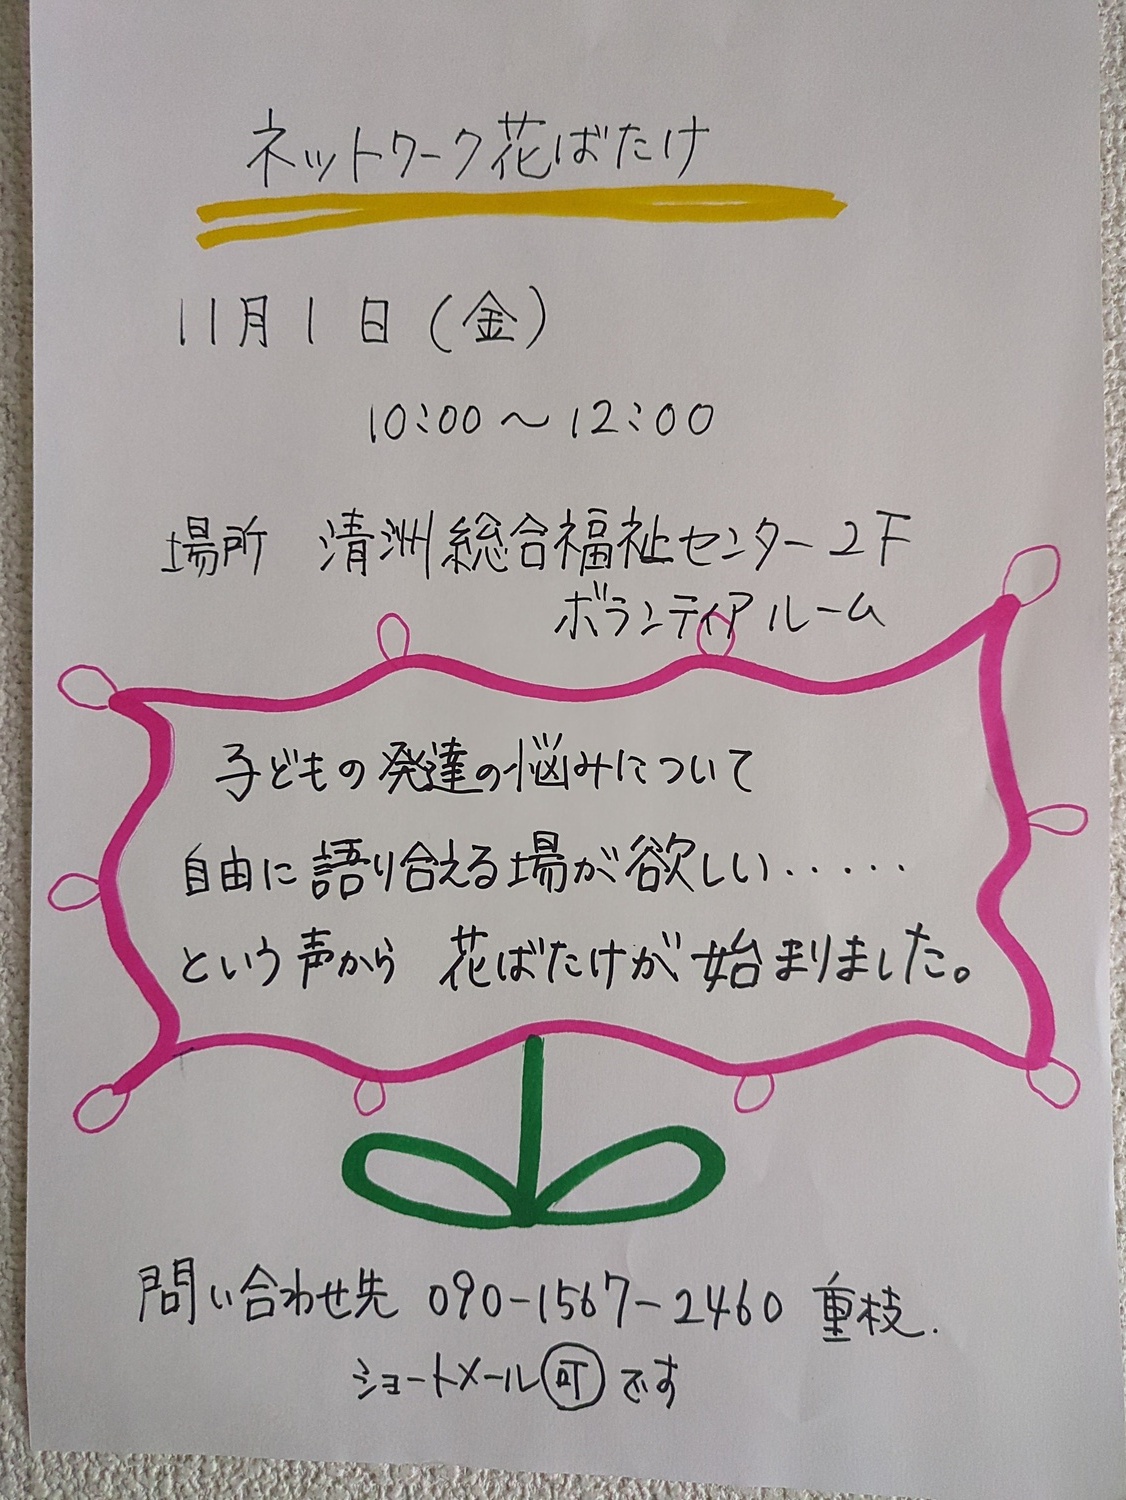 ネットワーク花ばたけ
11月1日(金)
10:00～12:00
場所 清洲総合福祉センター2F
ボランティアルーム
子どもの発達の悩みについて
自由に語り合える場が欲しい.....
という声から 花ばたけが始まりました。
問い合わせ先 090-1567-2460 重枝.
ショートメール可です